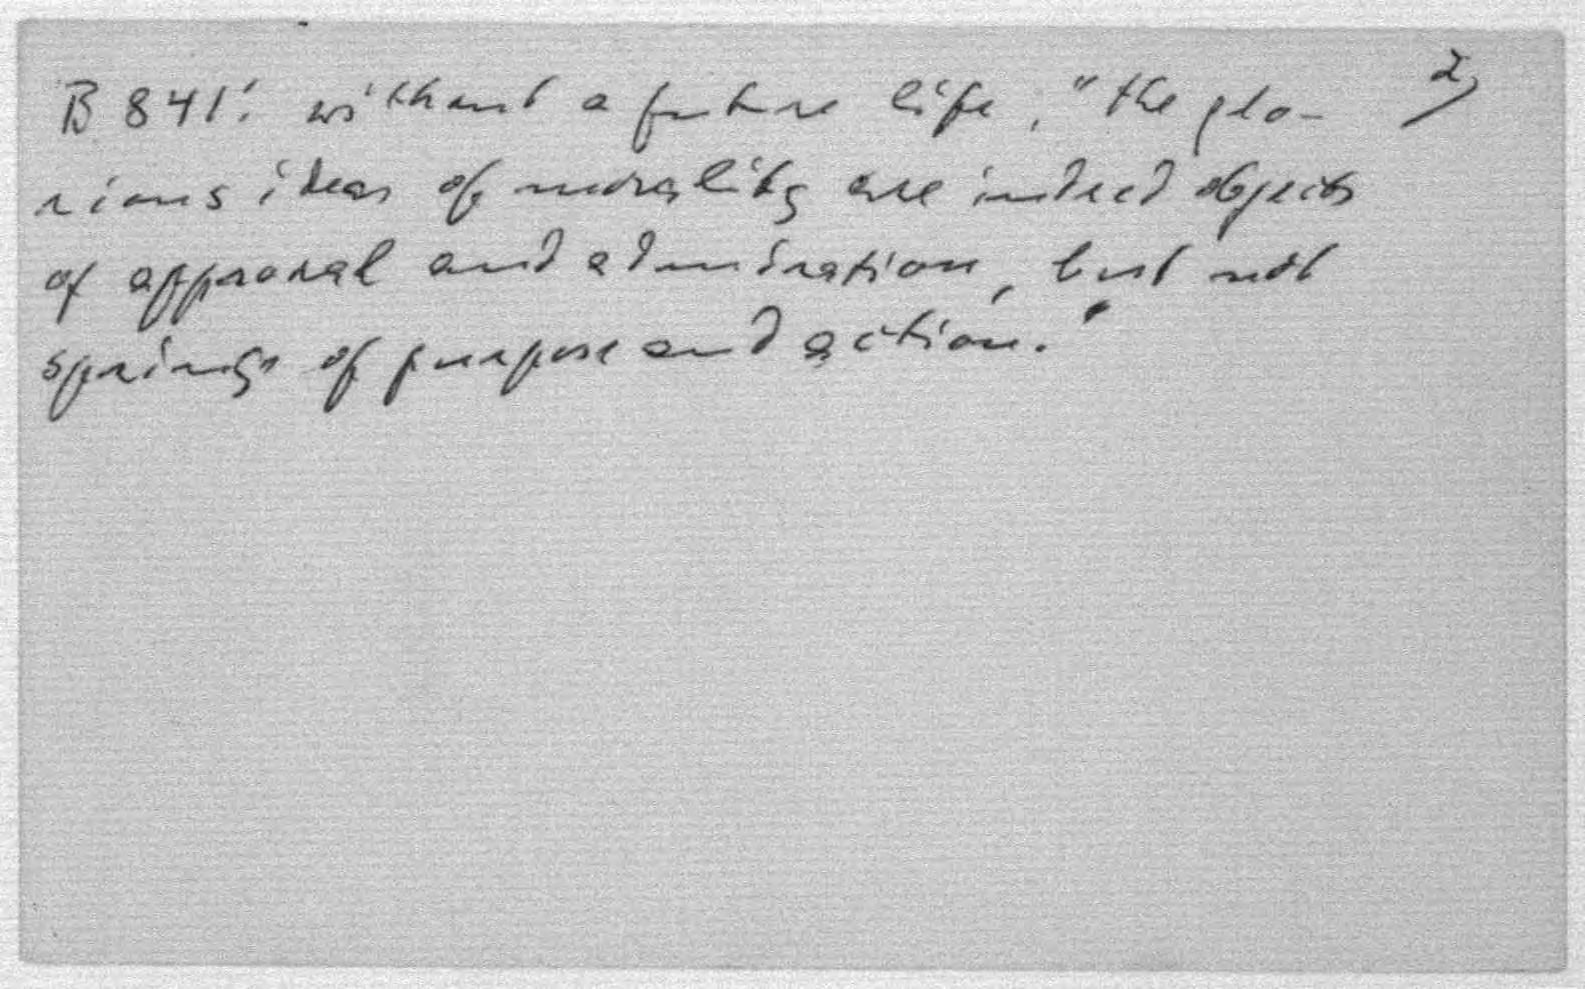 B 841: without a future life, "the glo- 2)
rious ideas of morality are indeed objects
of approval and admiration, but not
springs of purpose and action."